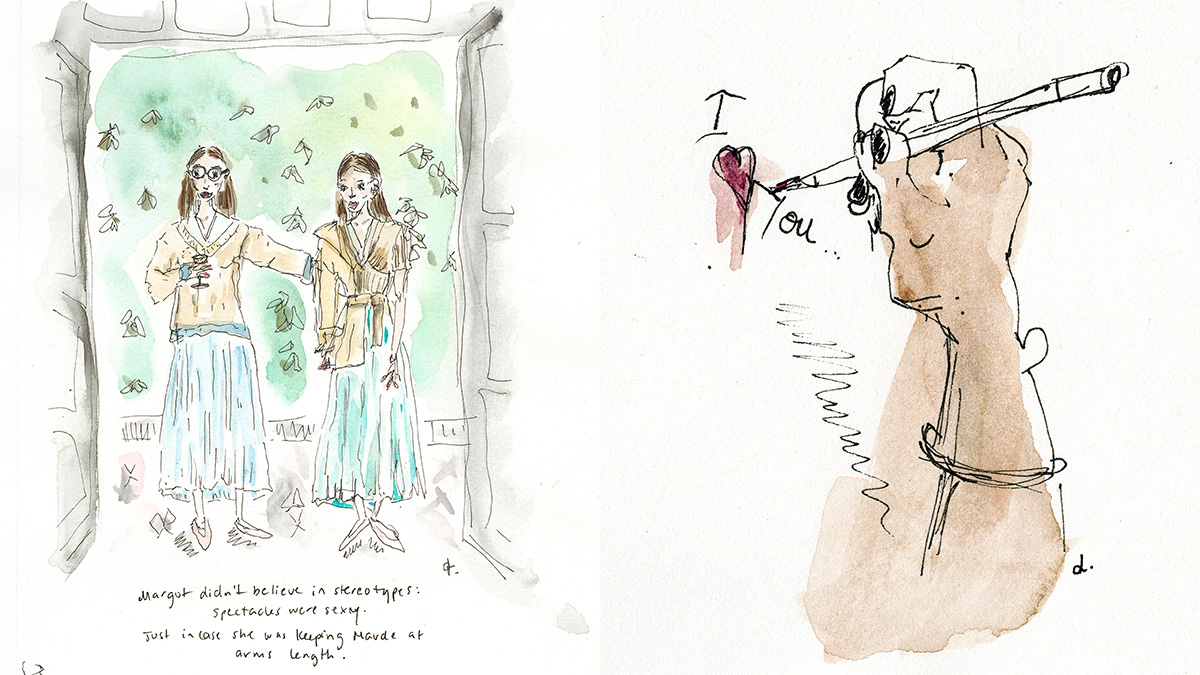 Margot didn't believe in stereotypes:
spectacles were sexy.
Just in case she was keeping Maude at
arms length.
d.
I
You..
d.